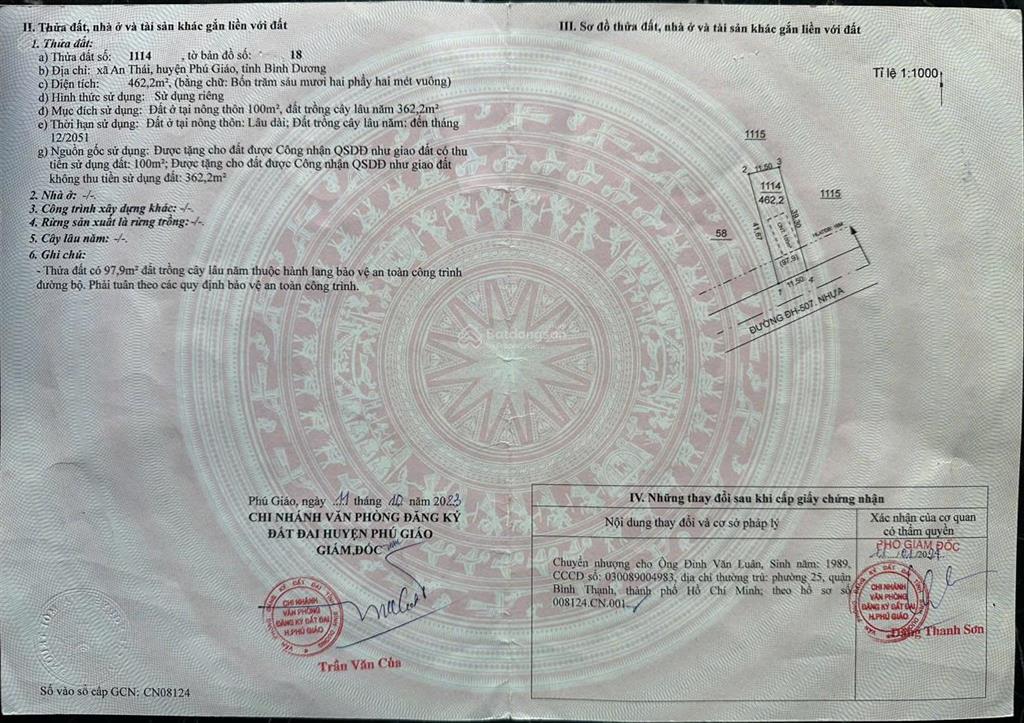 II. Thửa đất, nhà ở và tài sản khác gắn liền với đất
1. Thửa đất:
a) Thửa đất số: 1114 , tờ bản đồ số: 18
b) Địa chỉ: xã An Thái, huyện Phú Giáo, tỉnh Bình Dương
c) Diện tích: 462,2m², (bằng chữ: Bốn trăm sáu mươi hai phẩy hai mét vuông)
d) Hình thức sử dụng: Sử dụng riêng
đ) Mục đích sử dụng: Đất ở tại nông thôn 100m², đất trồng cây lâu năm 362,2m²
e) Thời hạn sử dụng: Đất ở tại nông thôn: Lâu dài; Đất trồng cây lâu năm; đến tháng
12/2051
g) Nguồn gốc sử dụng: Được tặng cho đất được Công nhận QSDĐ như giao đất có thu
tiền sử dụng đất: 100m²; Được tặng cho đất được Công nhận QSDĐ như giao đất
không thu tiền sử dụng đất: 362,2m²
2. Nhà ở: -/-.
3. Công trình xây dựng khác: -/-.
4. Rừng sản xuất là rừng trồng: -/-.
5. Cây lâu năm: -/-.
6. Ghi chú:
- Thửa đất có 97,9m² đất trồng cây lâu năm thuộc hành lang bảo vệ an toàn công trình
đường bộ. Phải tuân theo các quy định bảo vệ an toàn công trình.
III. Sơ đồ thửa đất, nhà ở và tài sản khác gắn liền với đất
Tỉ lệ 1:1000
1115
2 11,50 3
1114
462,2
1115
58
41,67
39,30
(97,9)
1 11,50 4
ĐƯỜNG ĐH-507, NHỰA
Batdongsan
Phú Giáo, ngày 11 tháng 10 năm 2023
CHI NHÁNH VĂN PHÒNG ĐĂNG KÝ
ĐẤT ĐAI HUYỆN PHÚ GIÁO
GIÁM ĐỐC
CHI NHÁNH
VĂN PHÒNG
ĐĂNG KÝ ĐẤT ĐAI
H.PHÚ GIÁO
Trần Văn Của
Số vào sổ cấp GCN: CN08124
IV. Những thay đổi sau khi cấp giấy chứng nhận
Nội dung thay đổi và cơ sở pháp lý
Xác nhận của cơ quan
có thẩm quyền
Chuyển nhượng cho Ông Đinh Văn Luân, Sinh năm: 1989,
CCCD số: 030089004983, địa chỉ thường trú: phường 25, quận
Bình Thạnh, thành phố Hồ Chí Minh; theo hồ sơ số
008124.CN.001
PHÓ GIÁM ĐỐC
CHI NHÁNH
VĂN PHÒNG
ĐĂNG KÝ ĐẤT ĐAI
H.PHÚ GIÁO
Đặng Thanh Sơn